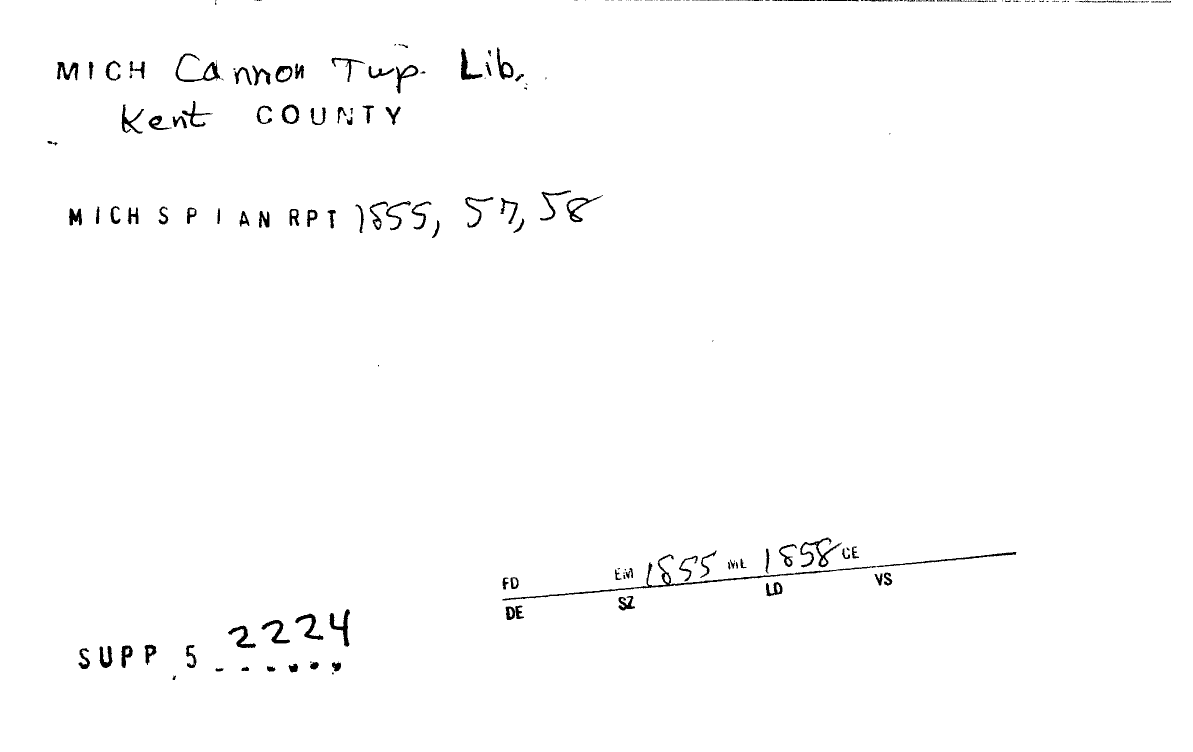 MICH Cannon Twp. Lib.
Kent COUNTY
MICH S P I AN RPT 1855, 57, 58
FD EM 1855 ML 1858 CE
DE SZ LD VS
2224
SUPP 5 ......